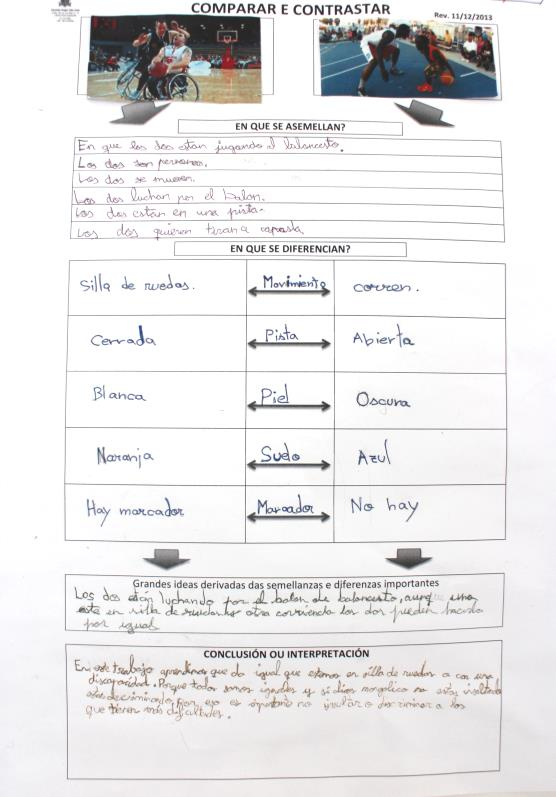 COMPARAR E CONTRASTAR
Rev. 11/12/2013
EN QUE SE ASEMELLAN?
En que los dos estan jugando al baloncesto.
Los dos son personas.
Los dos se mueven.
Los dos luchan por el balon.
Los dos están en una pista.
Los dos quieren tirar a canasta
EN QUE SE DIFERENCIAN?
Silla de ruedas. Movimiento corren.
Cerrada Pista Abierta
Blanca Piel Oscura
Naranja Suelo Azul
Hay marcador Marcador No hay
Grandes ideas derivadas das semellanzas e diferenzas importantes
Los dos están luchando por el balon de baloncesto, aunque uno
este en silla de ruedas otro corriendo los dos pueden hacerlo
por igual
CONCLUSIÓN OU INTERPRETACIÓN
En este trabajo aprendimos que da igual que estemos en silla de ruedas o con una
discapacidad. Porque todos somos iguales y si dices mongolico no estas insultando
estas discriminando, por eso es no insultar o discriminar a los
que tienen más dificultades.